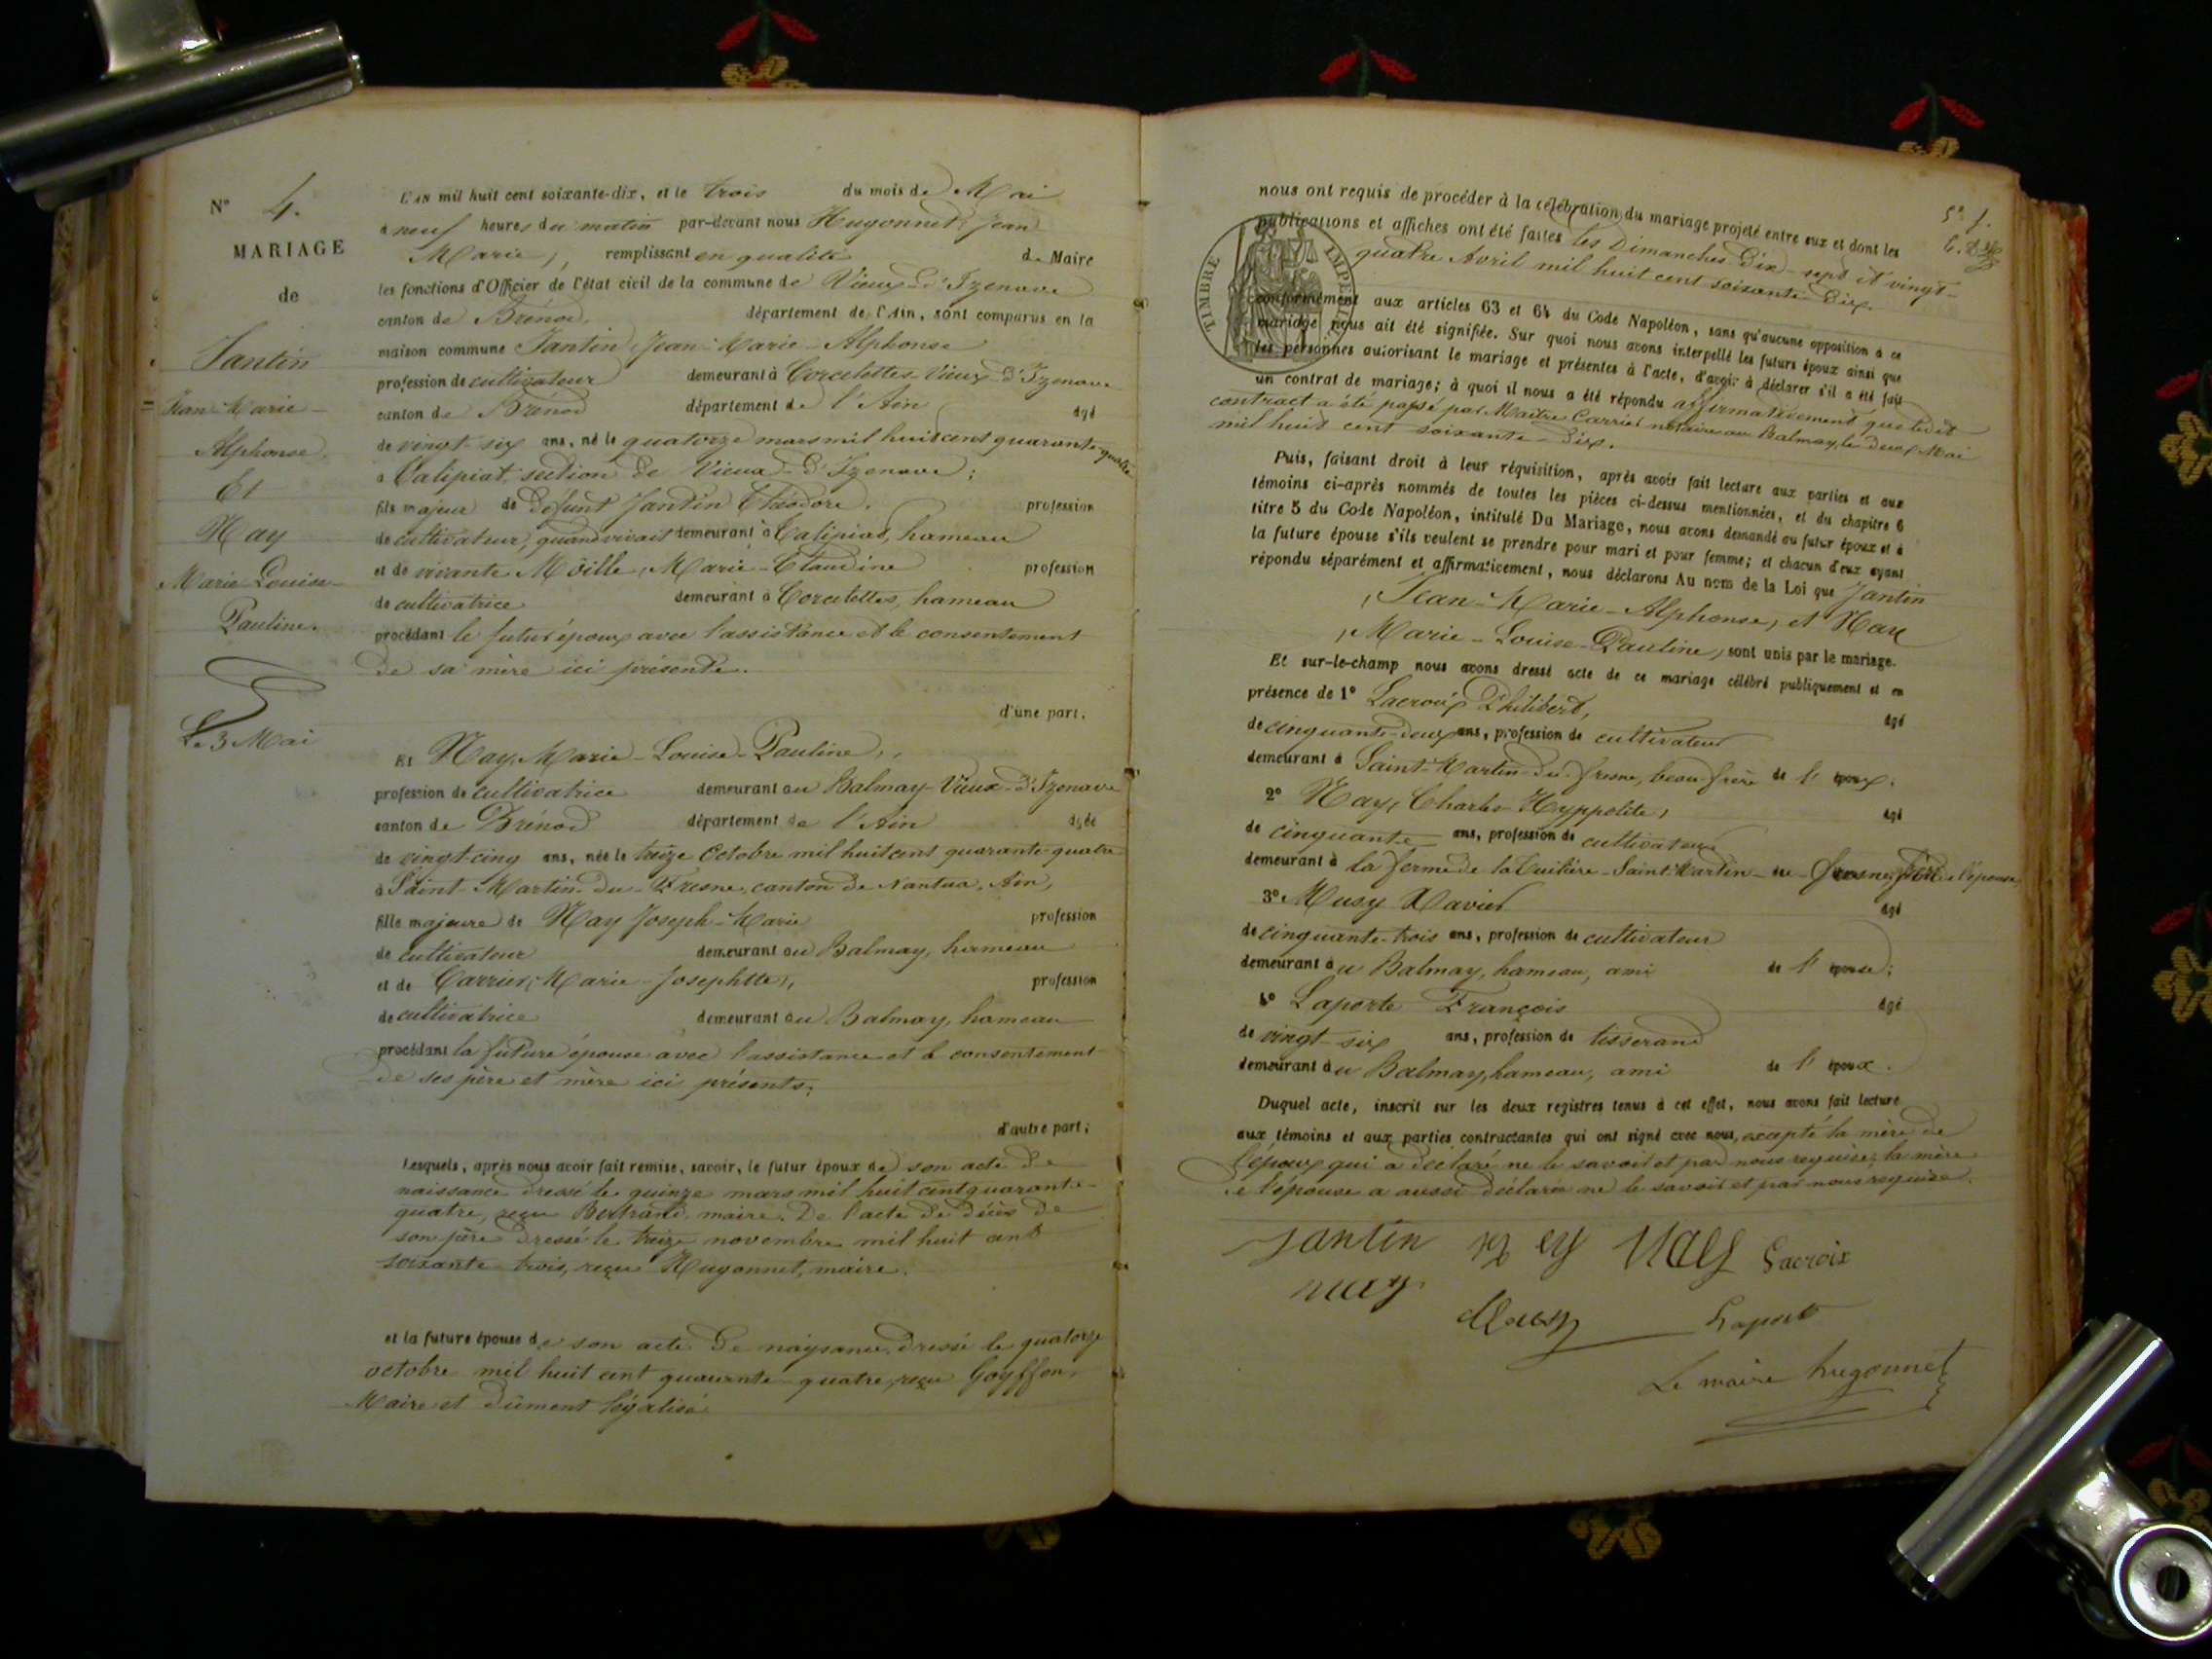 N° 4.
MARIAGE
de
Jantin
Jean-Marie-
Alphonse.
Et
Nay
Marie-Louise-
Pauline.
Le 3 Mai
L'AN mil huit cent soixante-dix, et le trois du mois de Mai
à neuf heures du matin par-devant nous Hugonnet, Jean
Marie, remplissant en qualité de Maire
les fonctions d'Officier de l'état civil de la commune de Vieux-d'Izenave
canton de Brénod, département de l'Ain, sont comparus en la
maison commune Jantin, Jean-Marie-Alphonse
profession de cultivateur demeurant à Corcelettes-Vieux-d'Izenave
canton de Brénod département de l'Ain âgé
de vingt-six ans, né le quatorze mars mil huit cent quarante-quatre
à Talipiat, section de Vieux-d'Izenave;
fils majeur de défunt Jantin Théodore, profession
de cultivateur, quand vivait demeurant à Talipiat, hameau
et de vivante Moille, Marie-Claudine profession
de cultivatrice demeurant à Corcelettes, hameau
procédant le futur époux avec l'assistance et le consentement
de sa mère ici présente.
d'une part,
Et Nay, Marie-Louise-Pauline,
profession de cultivatrice demeurant au Balmay-Vieux-d'Izenave
canton de Brénod département de l'Ain âgée
de vingt-cinq ans, née le treize Octobre mil huit cent quarante-quatre
à Saint-Martin-du-Fresne, canton de Nantua, Ain,
fille majeure de Nay Joseph-Marie profession
de cultivateur demeurant au Balmay, hameau
et de Carrier, Marie-Josephtte, profession
de cultivatrice demeurant au Balmay, hameau
procédant la future épouse avec l'assistance et le consentement
de ses père et mère ici présents;
d'autre part;
Lesquels, après nous avoir fait remise, savoir, le futur époux de son acte de
naissance dressé le quinze mars mil huit cent quarante-
quatre, reçu Bertrand, maire. De l'acte de décès de
son père dressé le treize novembre mil huit cent
soixante-trois, reçu Hugonnet, maire.
et la future épouse de son acte de naissance dressé le quatorze
octobre mil huit cent quarante-quatre, reçu Goyffon,
Maire et dûment légalisé
nous ont requis de procéder à la célébration du mariage projeté entre eux et dont les
publications et affiches ont été faites les Dimanches dix-sept et vingt-
quatre Avril mil huit cent soixante-dix.
TIMBRE IMPÉRIAL
conformément aux articles 63 et 64 du Code Napoléon, sans qu'aucune opposition à ce
mariage nous ait été signifiée. Sur quoi nous avons interpellé les futurs époux ainsi que
les personnes autorisant le mariage et présentes à l'acte, d'avoir à déclarer s'il a été fait
un contrat de mariage; à quoi il nous a été répondu affirmativement que ledit
contract a été passé par Maître Carrier notaire au Balmay, le deux Mai
mil huit cent soixante-dix.
Puis, faisant droit à leur réquisition, après avoir fait lecture aux parties et aux
témoins ci-après nommés de toutes les pièces ci-dessus mentionnées, et du chapitre 6
titre 5 du Code Napoléon, intitulé Du Mariage, nous avons demandé au futur époux et à
la future épouse s'ils veulent se prendre pour mari et pour femme; et chacun d'eux ayant
répondu séparément et affirmativement, nous déclarons Au nom de la Loi que Jantin
, Jean-Marie-Alphonse, et Nay
, Marie-Louise-Pauline, sont unis par le mariage.
Et sur-le-champ nous avons dressé acte de ce mariage célébré publiquement et en
présence de 1° Lacroix Philibert, âgé
de cinquante-deux ans, profession de cultivateur
demeurant à Saint-Martin-du-fresne, beau-frère de l'époux.
2° Nay, Charles-Hyppolite, âgé
de cinquante ans, profession de cultivateur
demeurant à la ferme de la Tuilière-Saint-Martin-du-fresne, de l'épouse,
3° Musy Xavier âgé
de cinquante-trois ans, profession de cultivateur
demeurant au Balmay, hameau, ami de l'épouse;
4° Laporte François âgé
de vingt-six ans, profession de tisserand
demeurant au Balmay, hameau, ami de l'époux.
Duquel acte, inscrit sur les deux registres tenus à cet effet, nous avons fait lecture
aux témoins et aux parties contractantes qui ont signé avec nous, excepté la mère de
l'époux qui a déclaré ne le savoir et par nous requise; la mère
de l'épouse a aussi déclaré ne le savoir et par nous requise.
Jantin Ney Nay Lacroix
nay
Musy Laporte
Le maire hugonnet